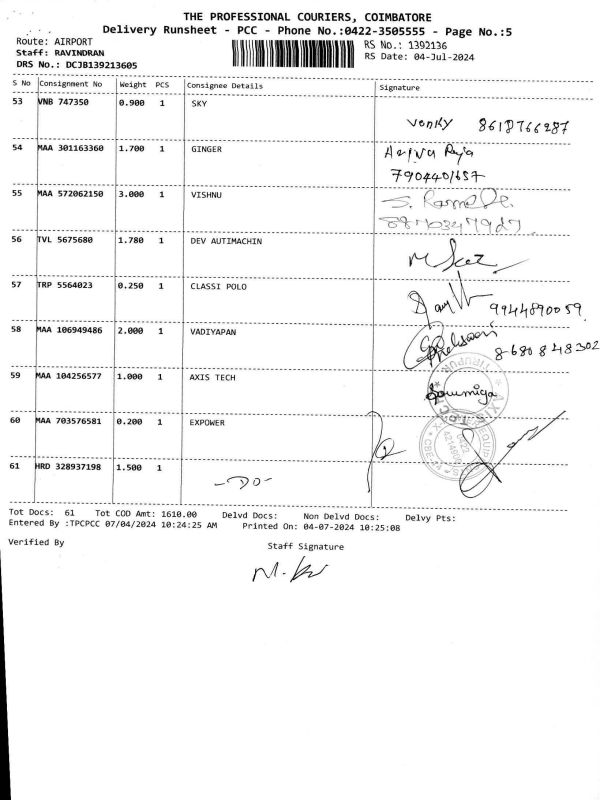 THE PROFESSIONAL COURIERS, COIMBATORE
Delivery Runsheet - PCC - Phone No.:0422-3505555 - Page No.:5
Route: AIRPORT
Staff: RAVINDRAN
DRS No.: DCJB139213605
RS No.: 1392136
RS Date: 04-Jul-2024
S No Consignment No Weight PCS Consignee Details Signature
53 VNB 747350 0.900 1 SKY
Venky 8618766287
54 MAA 301163360 1.700 1 GINGER
7904401657
55 MAA 572062150 3.000 1 VISHNU
56 TVL 5675680 1.780 1 DEV AUTIMACHIN
57 TRP 5564023 0.250 1 CLASSI POLO
9944890059
58 MAA 106949486 2.000 1 VADIYAPAN
8680848302
59 MAA 104256577 1.000 1 AXIS TECH
Soumiya
60 MAA 703576581 0.200 1 EXPOWER
61 HRD 328937198 1.500 1
-DO-
Tot Docs: 61 Tot COD Amt: 1610.00 Delvd Docs: Non Delvd Docs: Delvy Pts:
Entered By :TPCPCC 07/04/2024 10:24:25 AM Printed On: 04-07-2024 10:25:08
Verified By Staff Signature